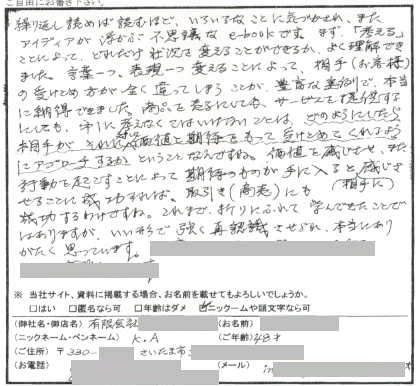 ご自由にお書き下さい。
繰り返し読めば読むほど、いろいろなことに気づかされ、また
アイディアが浮かぶ不思議なe-bookです。まず、「考える」
ことによって、どれだけ状況を変えることができるか、よく理解でき
ました。言葉一つ、表現一つ変えることによって、相手(お客様)
の受けとめ方が全く違ってしまうことが、豊富な実例で、本当
に納得できました。商品を売るにしても、サービスを提供する
にしても、常に考えなくてはいけないことは、どのようにしたら
相手が それに 高い価値と期待をもって受けとめてくれるよう
にアプローチするかということなんですね。価値を感じさせ、また
行動を起こすことによって期待のものが手に入ると(相手に)感じさ
せることに成功すれば、取引き(商売)にも
成功するわけですね。これまで、折りにふれて学んできたことで
はありますが、いい形で強く再認識させられ、本当にあり
がたく思っています。
※ 当社サイト、資料に掲載する場合、お名前を載せてもよろしいでしょうか。
□はい □匿名なら可 □年齢はダメ ☑ニックネームや頭文字なら可
(御社名・御店名) 有限会社 (お名前)
(ニックネーム・ペンネーム) K.A (ご年齢) 48才
(ご住所) 〒330- さいたま市
(お電話) (メール) in